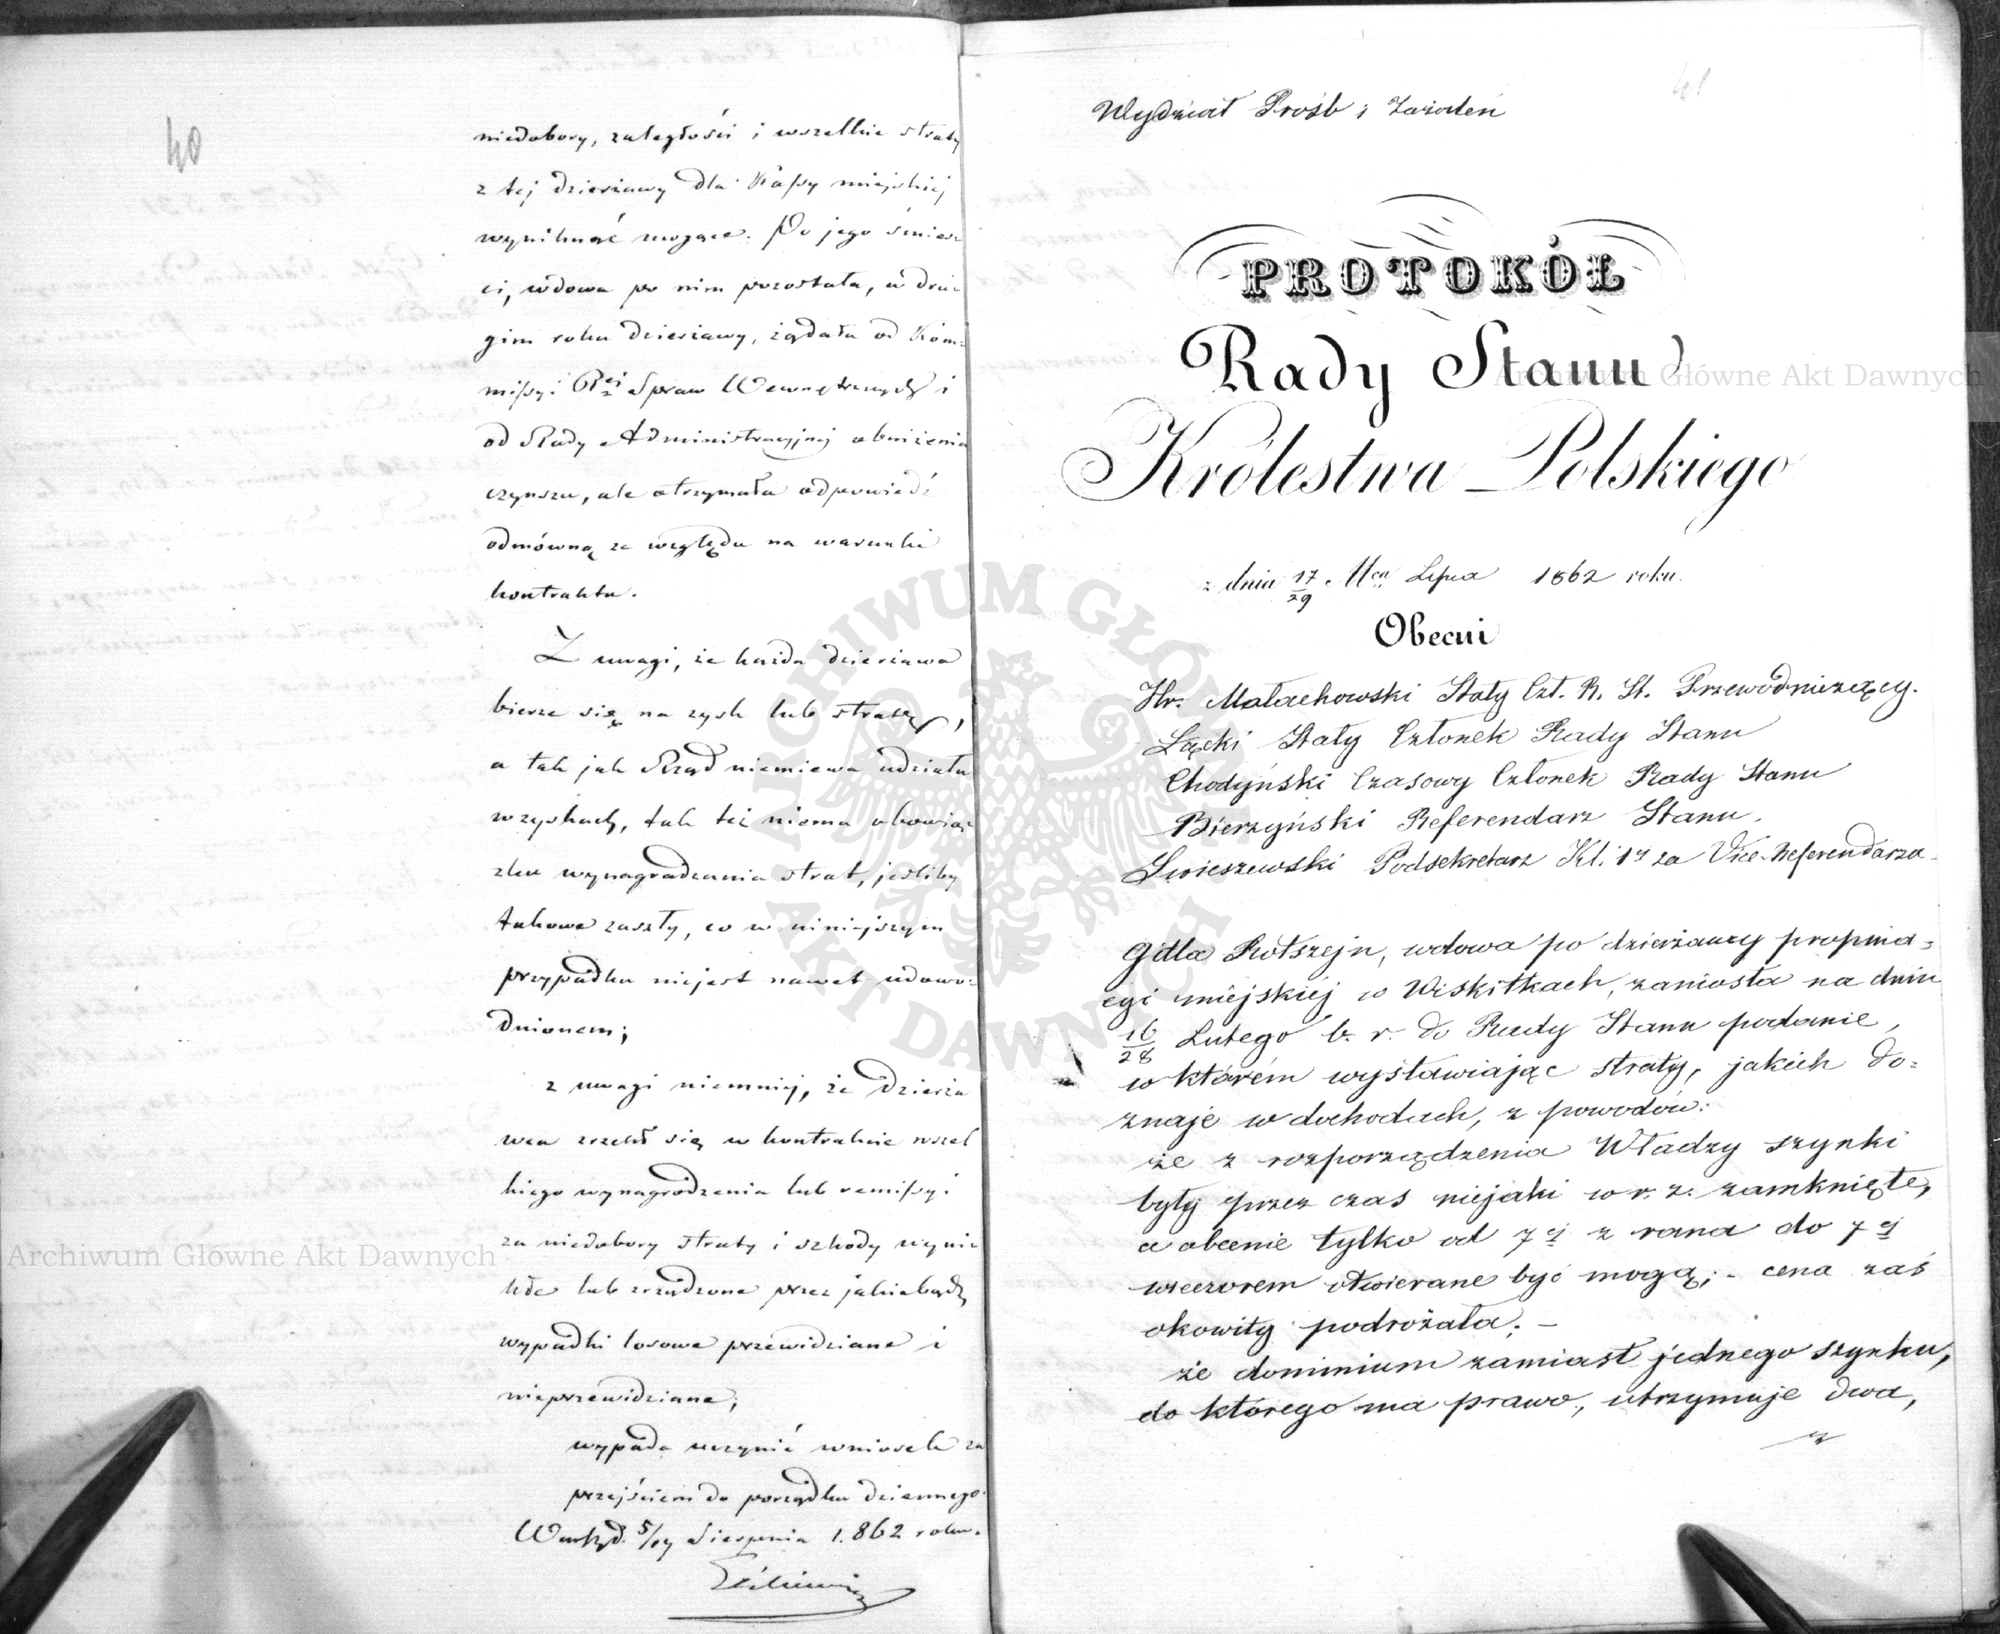 40
niedobory, zaległości i wszelkie straty
z tej dzierżawy dla Kassy miejskiej
wyniknąć mogące. Po jego śmier-
ci, wdowa po nim pozostała, w dru-
gim roku dzierżawy, żądała od Kom-
missyi Rz. Spraw Wewnętrznych i
od Rady Administracyjnej obniżenia
czynszu, ale otrzymała odpowiedź
odmówną ze względu na warunki
kontraktu.
Z uwagi, że każda dzierżawa
bierze się na zysk lub stratę,
a tak jak Rząd niemiewa udziału
w zyskach, tak też niema obowiąz-
zku wynagradzania strat, jeśliby
takowe zaszły, co w niniejszym
przypadku niejest nawet udowo-
dnionem;
z uwagi niemniej, że dzierża
wca zrzekł się w kontrakcie wszel
kiego wynagrodzenia lub remissyi
za niedobory straty i szkody wynik
łe lub zrządzone przez jakiebądź
wypadki losowe przewidziane i
nieprzewidziane;
wypada uczynić wniosek za
przejściem do porządku dziennego.
5/17 Sierpnia 1.862 roku.
41
Wydział Próśb i Zażaleń
PROTOKÓŁ
Rady Stanu
Królestwa Polskiego
z dnia 17/29 Mca Lipca 1862 roku.
Obecni
Hr. Małachowski Stały Czł. R. St. Przewodniczący.
Łącki Stały Członek Rady Stanu
Chodyński Czasowy Członek Rady Stanu
Bierzyński Referendarz Stanu.
Podsekretarz Kl. 1ej za Vice-Referendarza
Gitla Rotszejn, wdowa po dzierżawcy propina-
cyi miejskiej w Wiskitkach, zaniosła na dniu
16/28 Lutego b. r. do Rady Stanu podanie,
w którém wystawiając straty, jakich do-
znaje w dochodach, z powodów:
że z rozporządzenia Władzy szynki
były przez czas niejaki w r. z. zamknięte,
a obecnie tylko od 7ej z rana do 7ej
wieczorem otwierane być mogą; - cena zaś
okowity podrożała. -
że dominium zamiast jednego szynku,
do którego ma prawo, utrzymuje dwa,
Archiwum Główne Akt Dawnych
Archiwum Główne Akt Dawnych
ARCHIWUM GŁÓWNE AKT DAWNYCH